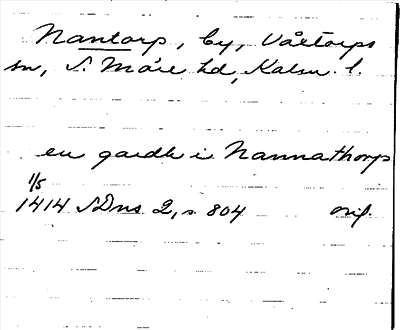 Nantorp, by, Våxtorps
sn, S. Möre hd, Kalm. l.
en gardh i Nannathorp
1/5
1414 SDns 2, s. 804 orig.